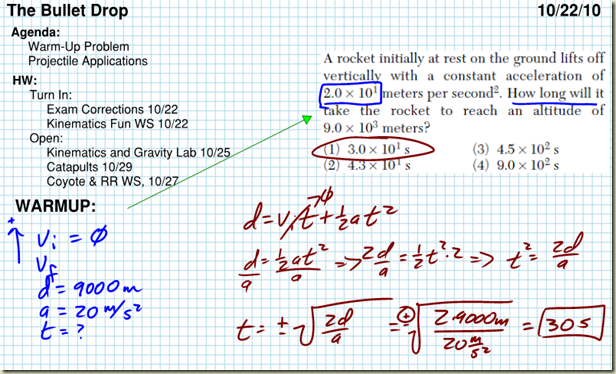 The Bullet Drop
10/22/10
Agenda:
Warm-Up Problem
Projectile Applications
HW:
Turn In:
Exam Corrections 10/22
Kinematics Fun WS 10/22
Open:
Kinematics and Gravity Lab 10/25
Catapults 10/29
Coyote & RR WS, 10/27
A rocket initially at rest on the ground lifts off
vertically with a constant acceleration of
2.0 × 10¹ meters per second². How long will it
take the rocket to reach an altitude of
9.0 × 10³ meters?
(1) 3.0 × 10¹ s
(2) 4.3 × 10¹ s
(3) 4.5 × 10² s
(4) 9.0 × 10² s
WARMUP:
+
vᵢ = ∅
v_f
d = 9000 m
a = 20 m/s²
t = ?
d = vᵢt→∅ + ½at²
d/a = ½at²/a => 2d/a = ½t²·2 => t² = 2d/a
t = ±√(2d/a) = ⊕√(2·9000m / 20 m/s²) = 30 s